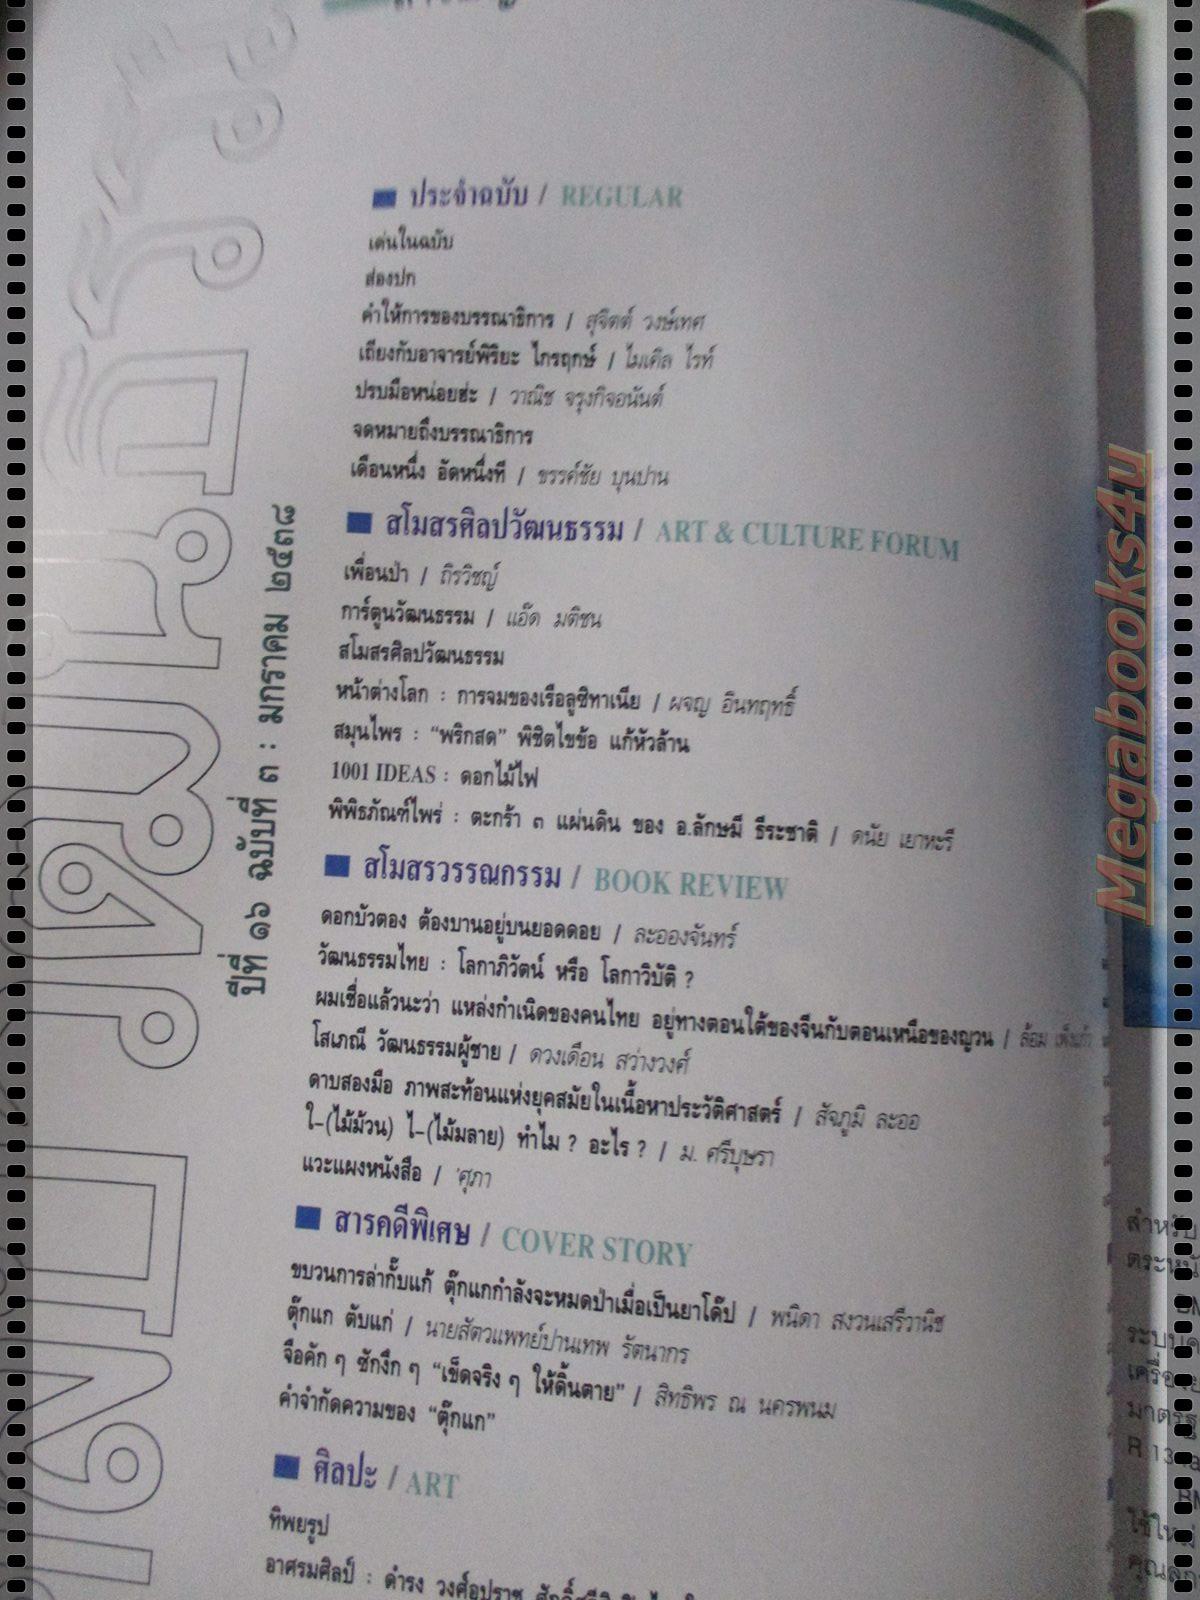 ประจำฉบับ / REGULAR
เด่นในฉบับ
ส่องปก
คำให้การของบรรณาธิการ / สุจิตต์ วงษ์เทศ
เถียงกับอาจารย์พิริยะ ไกรฤกษ์ / ไมเคิล ไรท์
ปรบมือหน่อยฮ่ะ / วาณิช จรุงกิจอนันต์
จดหมายถึงบรรณาธิการ
เดือนหนึ่ง อัดหนึ่งที / ขรรค์ชัย บุนปาน
สโมสรศิลปวัฒนธรรม / ART & CULTURE FORUM
เพื่อนป่า / ถิรวิชญ์
การ์ตูนวัฒนธรรม / แอ๊ด มติชน
สโมสรศิลปวัฒนธรรม
หน้าต่างโลก : การจมของเรือลูซิทาเนีย / ผจญ อินทฤทธิ์
สมุนไพร : “พริกสด” พิชิตไขข้อ แก้หัวล้าน
1001 IDEAS : ดอกไม้ไฟ
พิพิธภัณฑ์ไพร่ : ตะกร้า ๓ แผ่นดิน ของ อ.ลักษมี ธีระชาติ / ดนัย เยาหะรี
สโมสรวรรณกรรม / BOOK REVIEW
ดอกบัวตอง ต้องบานอยู่บนยอดดอย / ละอองจันทร์
วัฒนธรรมไทย : โลกาภิวัตน์ หรือ โลกาวิบัติ ?
ผมเชื่อแล้วนะว่า แหล่งกำเนิดของคนไทย อยู่ทางตอนใต้ของจีนกับตอนเหนือของญวน / ล้อม เพ็งแก้ว
โสเภณี วัฒนธรรมผู้ชาย / ดวงเดือน สว่างวงศ์
ดาบสองมือ ภาพสะท้อนแห่งยุคสมัยในเนื้อหาประวัติศาสตร์ / สัจภูมิ ละออ
ใ-(ไม้ม้วน) ไ-(ไม้มลาย) ทำไม ? อะไร ? / ม. ศรีบุษรา
แวะแผงหนังสือ / 'ศุภา
สารคดีพิเศษ / COVER STORY
ขบวนการล่ากั๊บแก้ ตุ๊กแกกำลังจะหมดป่าเมื่อเป็นยาโด๊ป / พนิดา สงวนเสรีวานิช
ตุ๊กแก ตับแก่ / นายสัตวแพทย์ปานเทพ รัตนากร
จือคัก ๆ ชักงึก ๆ “เข็ดจริง ๆ ให้ดิ้นตาย” / สิทธิพร ณ นครพนม
คำจำกัดความของ “ตุ๊กแก”
ศิลปะ / ART
ทิพยรูป
อาศรมศิลป์ : ดำรง วงศ์อุปราช
ปีที่ ๑๖ ฉบับที่ ๓ : มกราคม ๒๕๓๘
Megabooks4u
สำหรับ